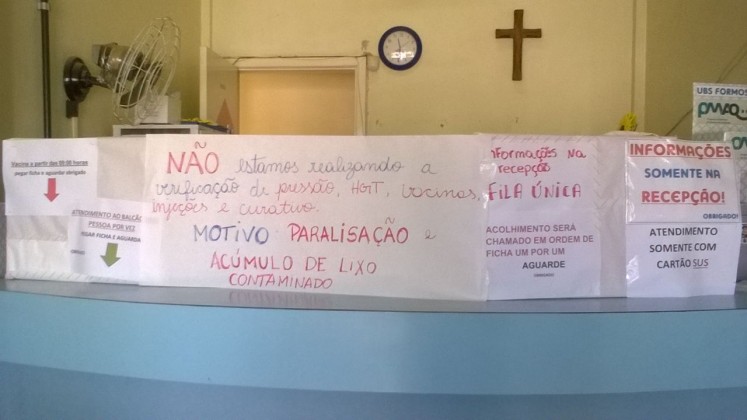 Vacina a partir das 08:00 horas
pegar ficha e aguardar obrigado
ATENDIMENTO AO BALCÃO
PESSOA POR VEZ
PEGAR FICHA E AGUARDA
NÃO estamos realizando a
verificação de pressão, HGT, vacinas,
injeções e curativo.
MOTIVO PARALISAÇÃO e
ACÚMULO DE LIXO
CONTAMINADO
Informações na
recepção
FILA ÚNICA
ACOLHIMENTO SERÁ
CHAMADO EM ORDEM DE
FICHA UM POR UM
AGUARDE
OBRIGADO
INFORMAÇÕES
SOMENTE NA
RECEPÇÃO!
OBRIGADO!
ATENDIMENTO
SOMENTE COM
CARTÃO SUS
UBS FORMOS
PMAQ